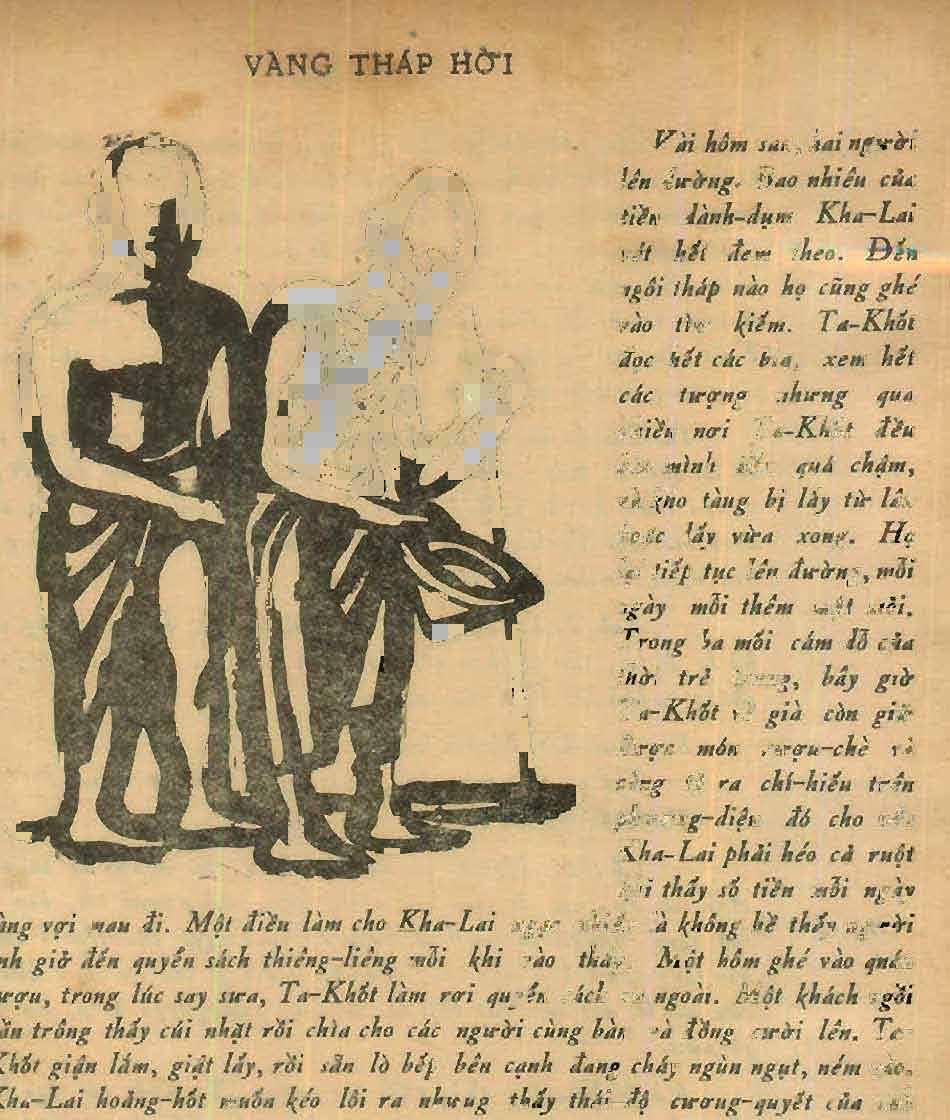 VÀNG THÁP HỜI
Vài hôm sau, hai người
lên đường. Bao nhiêu của
tiền dành-dụm Kha-Lai
vét hết đem theo. Đến
ngôi tháp nào họ cũng ghé
vào tìm kiếm. Ta-Khốt
đọc hết các bia, xem hết
các tượng nhưng qua
nhiều nơi Ta-Khốt đều
mình quá chậm,
kho tàng bị lấy từ lâu
hoặc lấy vừa xong. Họ
lại tiếp tục lên đường, mỗi
ngày mỗi thêm mệt mỏi.
Trong ba mối cám dỗ của
thời trẻ trung, bây giờ
Ta-Khốt về già còn giữ
được món rượu-chè và
cũng tỏ ra chí-hiếu trên
phương-diện đó cho nên
Kha-Lai phải héo cả ruột
khi thấy số tiền mỗi ngày
vợi mau đi. Một điều làm cho Kha-Lai ngạc nhiên là không hề thấy người
giờ đến quyển sách thiêng-liêng mỗi khi vào tháp. Một hôm ghé vào quán
rượu, trong lúc say sưa, Ta-Khốt làm rơi quyển sách ra ngoài. Một khách ngồi
gần trông thấy cúi nhặt rồi chìa cho các người cùng bàn và đồng cười lên. Ta-
Khốt giận lắm, giật lấy, rồi sẵn lò bếp bên cạnh đang cháy ngùn ngụt, ném vào.
Kha-Lai hoảng-hốt muốn kéo lôi ra nhưng thấy thái độ cương-quyết của